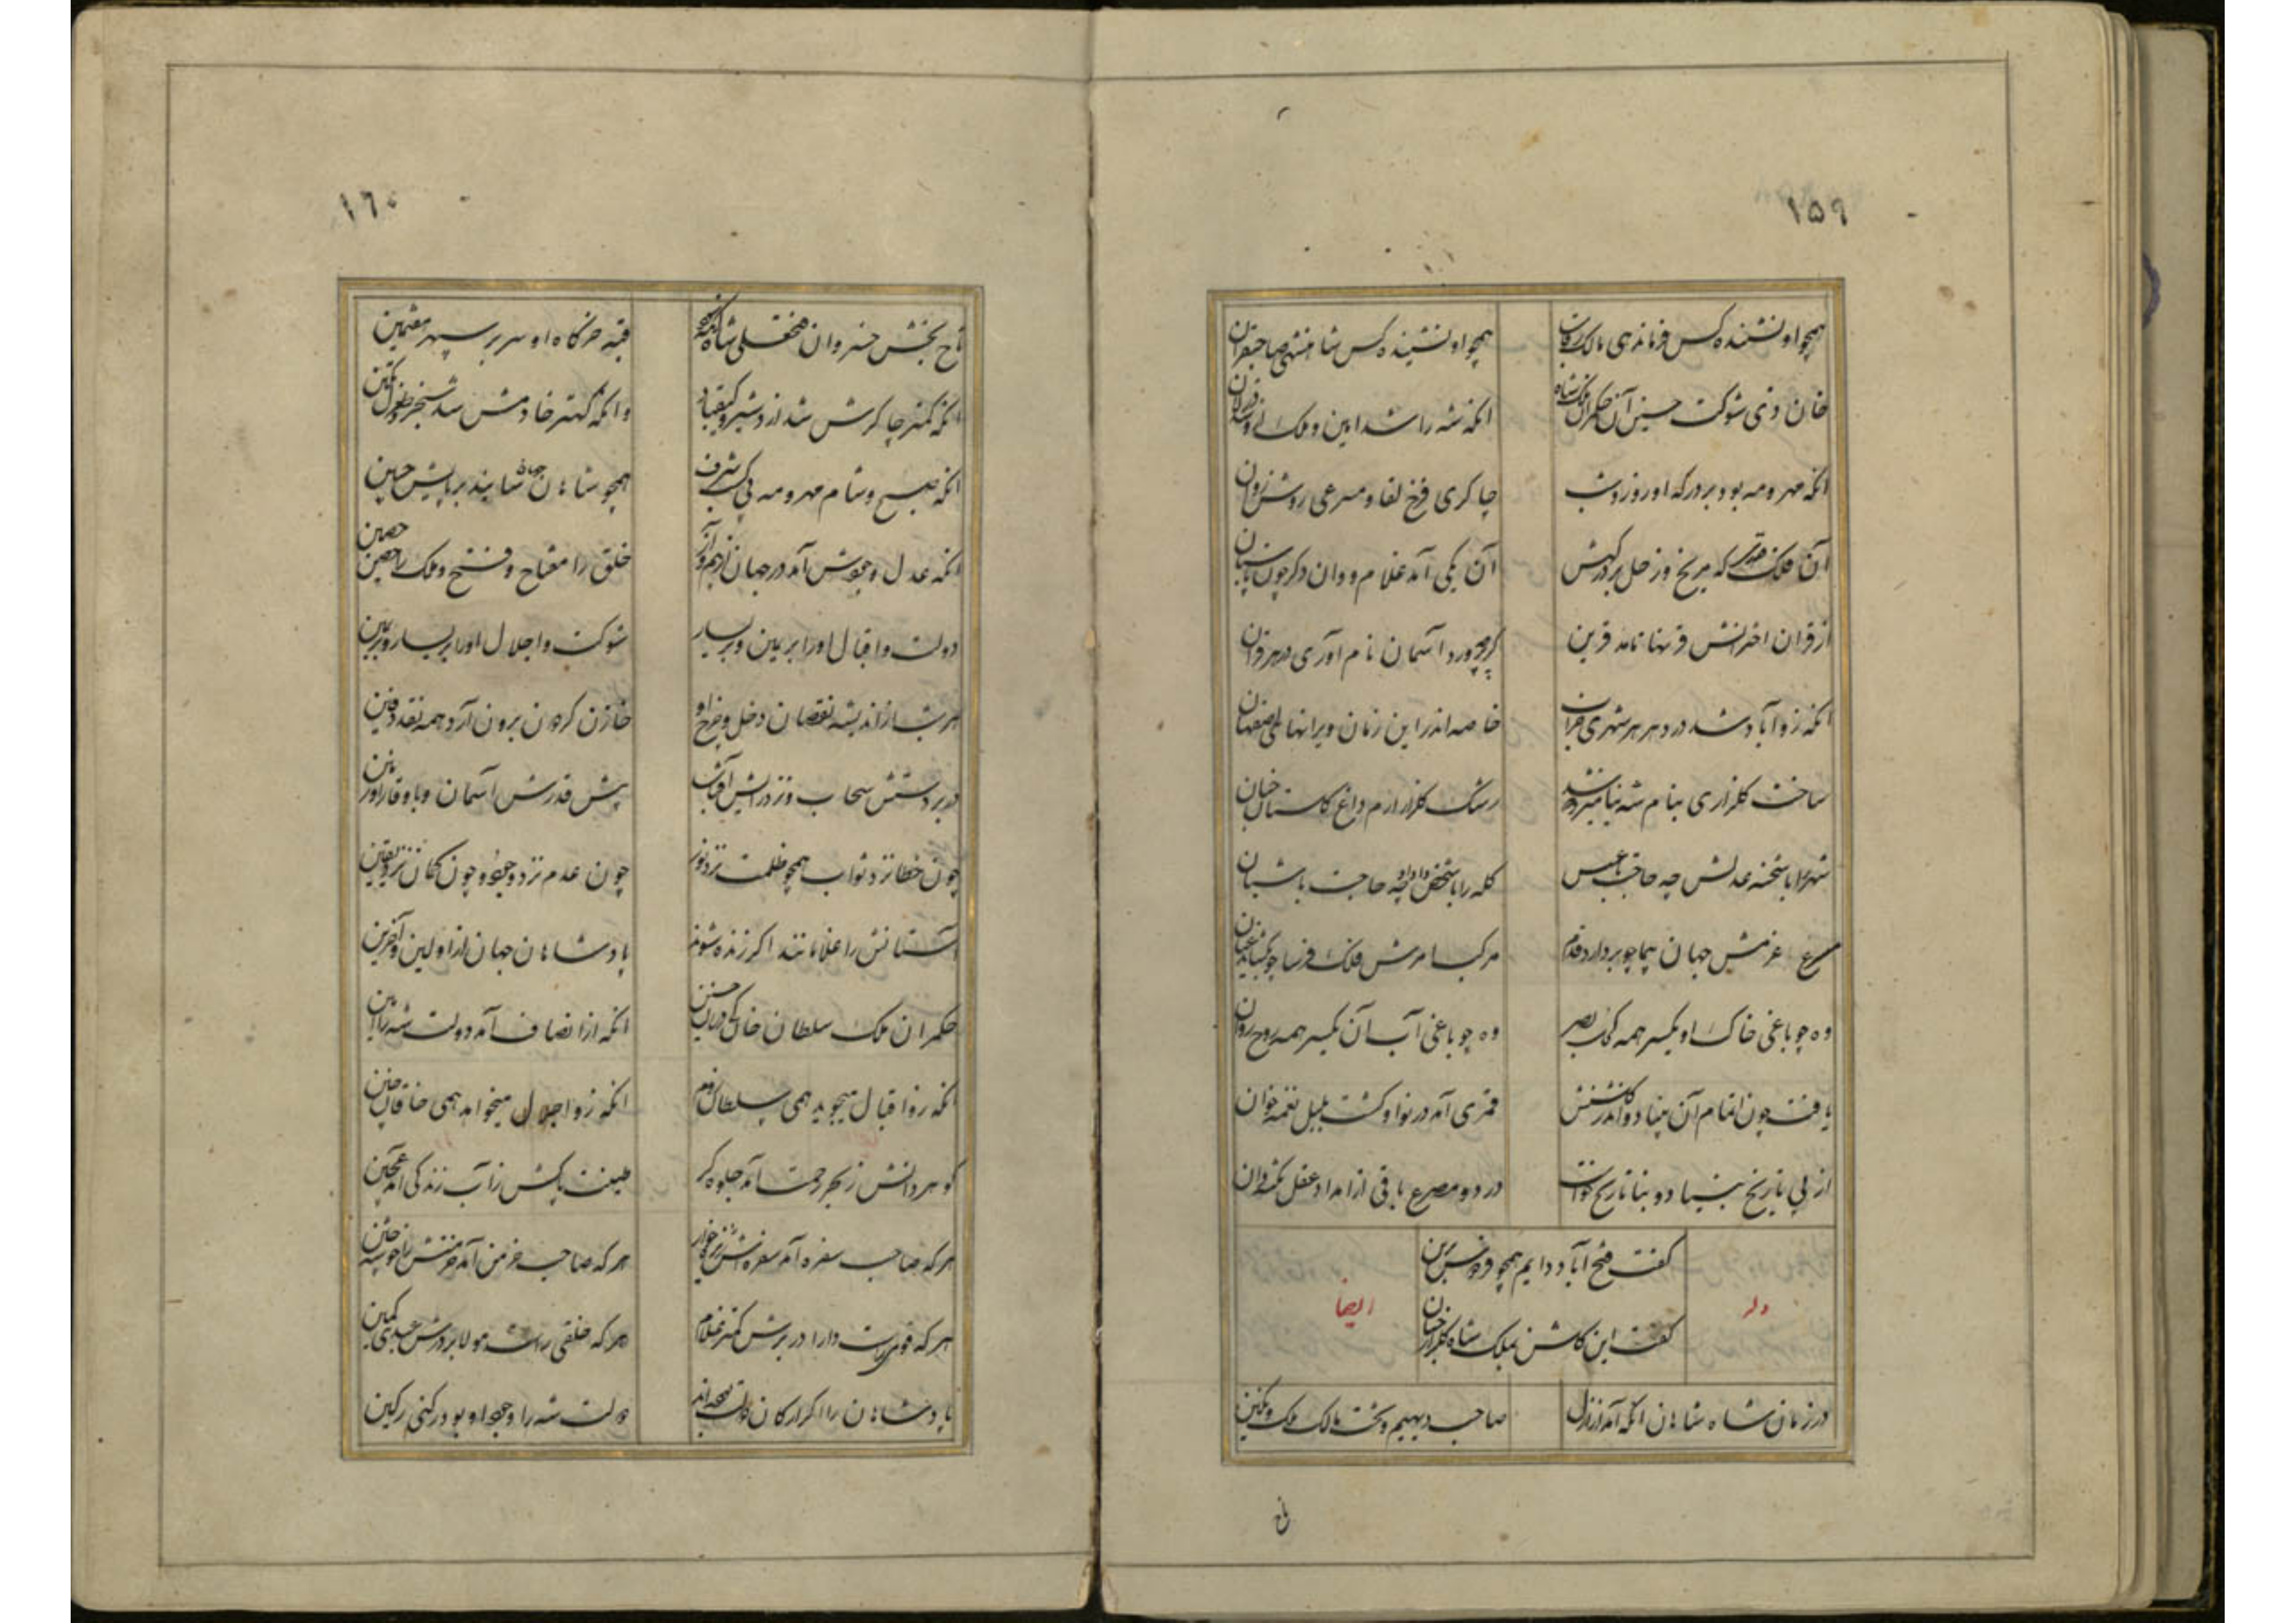 ۱۵۹
همچو او ننشنده کس فرماندهی مالک رقاب
همچو او ننشینده کس شاهنشهی صاحبقران
خان ذی شوکت حسین آن حکمران ملک شاه
انکه شه را شد امین و ملک را
انکه مهر و مه بود بر درکه او روز و شب
چاکری فرخ لقا و مسرعی روشن روان
آن فلک قدری که مریخ و زحل بر درکهش
آن یکی آمد غلام و وان دکر چون پاسبان
از قران اخترانش قرنها نامد قرین
کرچه پرورد آسمان نام آوری در هر قران
انکه زو آباد شد در دهر هر شهری خراب
خاصه اندر این زمان ویرانهای اصفهان
ساخت کلزاری بنام شه بنا میزد که شد
رشک کلزار ارم داغ کلستان جنان
شهر را با شحنه عدلش چه حاجت با عسس
کله را با شخص داد او چه حاجت با شبان
مسرع عزمش جهان پیما چو بردارد قدم
مرکب امرش فلک فرسا چو بکشاید عنان
وه چو باغی خاک او یکسر همه کحل بصر
وه چو باغی آب آن یکسر همه روح روان
یافت چون اتمام آن بنیاد و اندر کلشنش
قمری آمد در نوا و کشت بلبل نغمه خوان
از پی تاریخ بنیاد دو بنا تاریخ خواست
در دو مصرع باقی از امداد عقل نکته دان
کفت فتح آباد دایم همچو فردوس برین
کفت این کلشن بملک شاه کلزار جنان
وله ایضا
در زمان شاه شاهان انکه آمد از ازل
صاحب دیهیم و تخت و مالک ملک و نکین
تاج
۱۶۰
تاج بخش خسروان فتحعلی شاه آنکه
قبه خرکاه او سر بر سپهر هفتمین
انکه کمتر چاکرش شد اردشیر و کیقباد
وانکه کهتر خادمش شد سنجر و طغرل تکین
انکه صبح و شام مهر و مه پی کسب شرف
همچو شاهان جهان سایند بر پایش جبین
انکه عدل و جودش آمد در جهان از بیم و آز
خلق را مفتاح و فتح و ملک را حصن حصین
دولت و اقبال او را بر یمین و بر یسار
شوکت و اجلال او را بر یسار و بر یمین
هر شب از اندیشه نقصان دخل و خرج او
خازن کردون برون آرد همه نقد دفین
در بر دستش سحاب و نزد رایش آفتاب
پیش قدرش آسمان و با وقار او زمین
چون خطا نزد ثواب همچو ظلمت نزد نور
چون عدم نزد وجود و چون کمان نزد یقین
آستانش را غلامانند اکر زنده شوند
پادشاهان جهان از اولین و آخرین
حکمران ملک سلطان خان
انکه از انصاف آمد دولت شه را امین
انکه زو اقبال میجوید همی سلطان روم
انکه زو اجلال میخواهد همی خاقان چین
کوهر دانش ز بحر رحمت آمد جلوه کر
طینت پاکش ز آب زندکی آمد عجین
هرکه صاحب سفره آمد سفره اش را ریزه خوار
هرکه صاحب خرمن آمد خرمنش را خوشه چین
هرکه قومی راست دارا در برش کمتر غلام
هرکه خلقی راست مولا بر درش عبدی کمین
پادشاهان را اکر ارکان دولت بوده اند
دولت شه را وجود او بود رکنی رکین